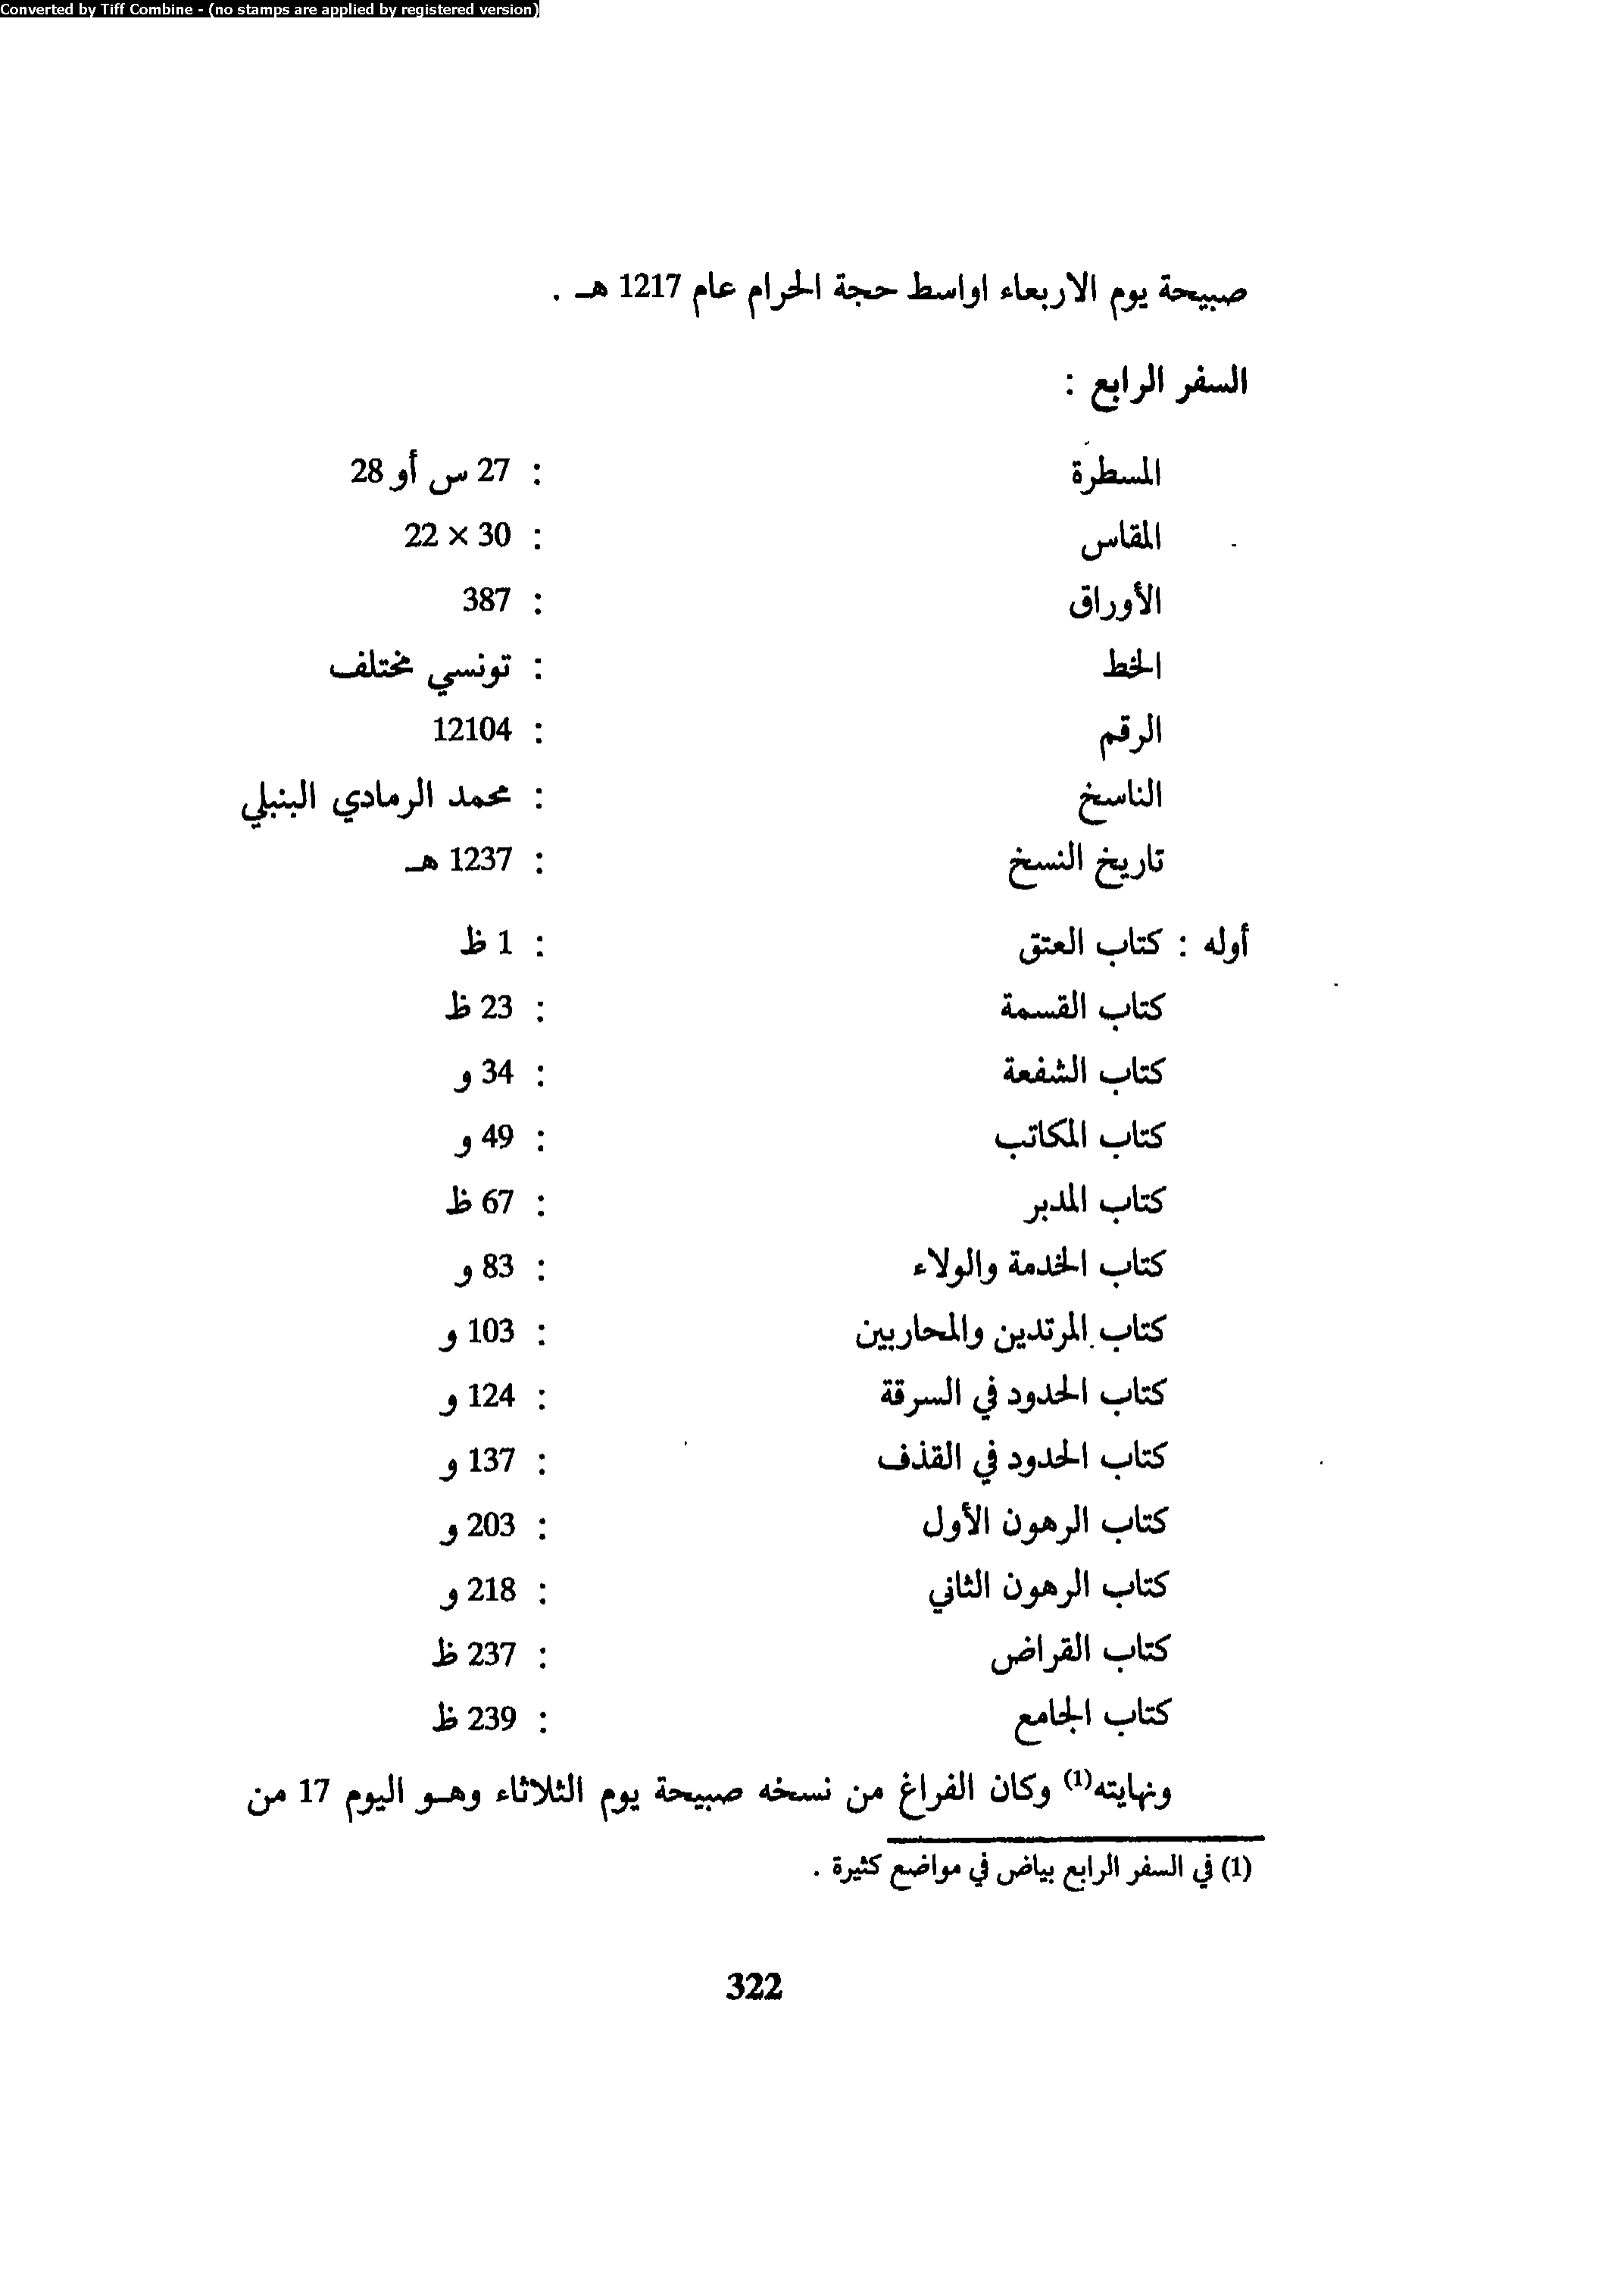 Converted by Tiff Combine - (no stamps are applied by registered version)
صبيحة يوم الاربعاء اواسط حجة الحرام عام 1217 هـ .
السفر الرابع :
المسطرة : 27 س أو 28
المقاس : 30 × 22
الأوراق : 387
الخط : تونسي مختلف
الرقم : 12104
الناسخ : محمد الرمادي البنبلي
تاريخ النسخ : 1237 هـ
أوله : كتاب العتق : 1 ظ
كتاب القسمة : 23 ظ
كتاب الشفعة : 34 و
كتاب المكاتب : 49 و
كتاب المدبر : 67 ظ
كتاب الخدمة والولاء : 83 و
كتاب المرتدين والمحاربين : 103 و
كتاب الحدود في السرقة : 124 و
كتاب الحدود في القذف : 137 و
كتاب الرهون الأول : 203 و
كتاب الرهون الثاني : 218 و
كتاب القراض : 237 ظ
كتاب الجامع : 239 ظ
ونهايته(1) وكان الفراغ من نسخه صبيحة يوم الثلاثاء وهو اليوم 17 من
(1) في السفر الرابع بياض في مواضع كثيرة .
322